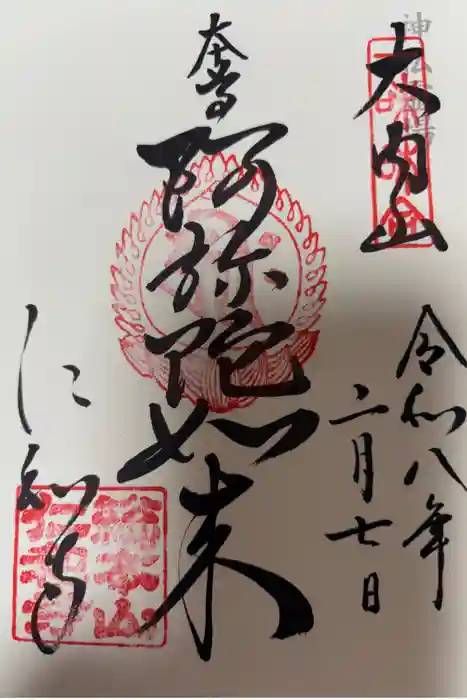 神仏霊場
大内山
令和八年
二月七日
奉
阿弥陀如来
仁和寺
総本山
仁和寺